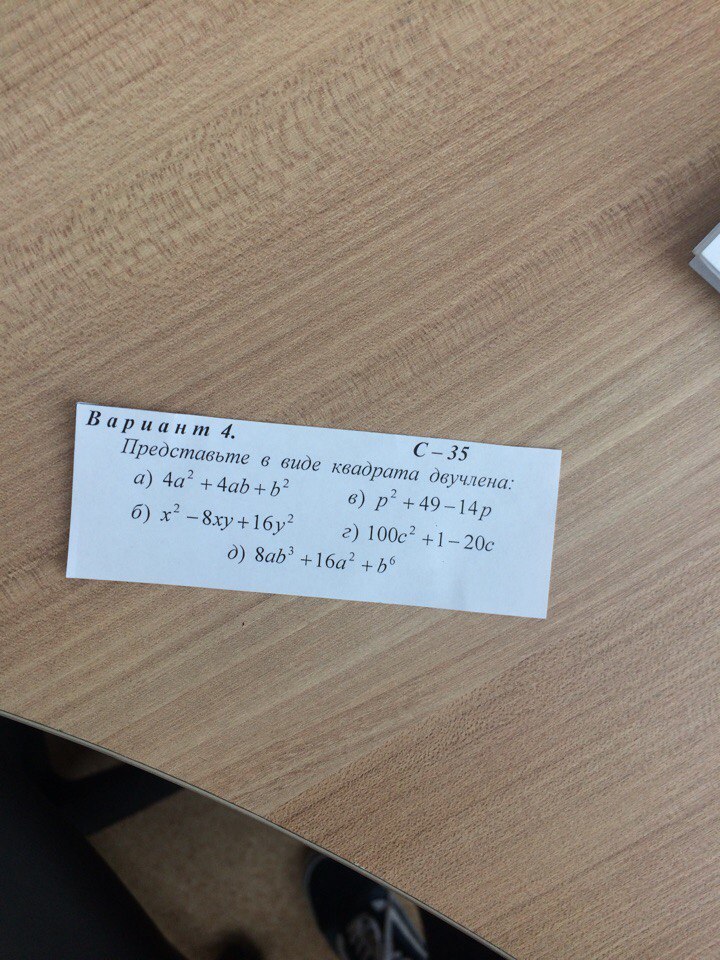 Вариант 4.
С – 35
Представьте в виде квадрата двучлена:
а) 4a² + 4ab + b²
в) p² + 49 – 14p
б) x² – 8xy + 16y²
г) 100c² + 1 – 20c
д) 8ab³ + 16a² + b⁶